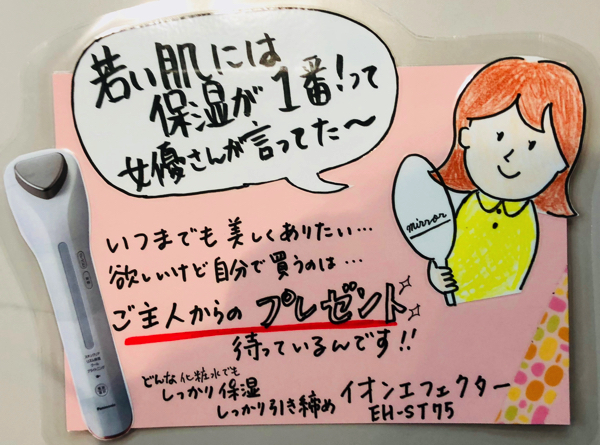 若い肌には
保湿が1番!って
女優さんが言ってた〜
mirror
いつまでも美しくありたい…
欲しいけど自分で買うのは…
ご主人からのプレゼント
待っているんです!!
どんな化粧水でも
しっかり保湿
しっかり引き締め
イオンエフェクター
EH-ST75
Panasonic